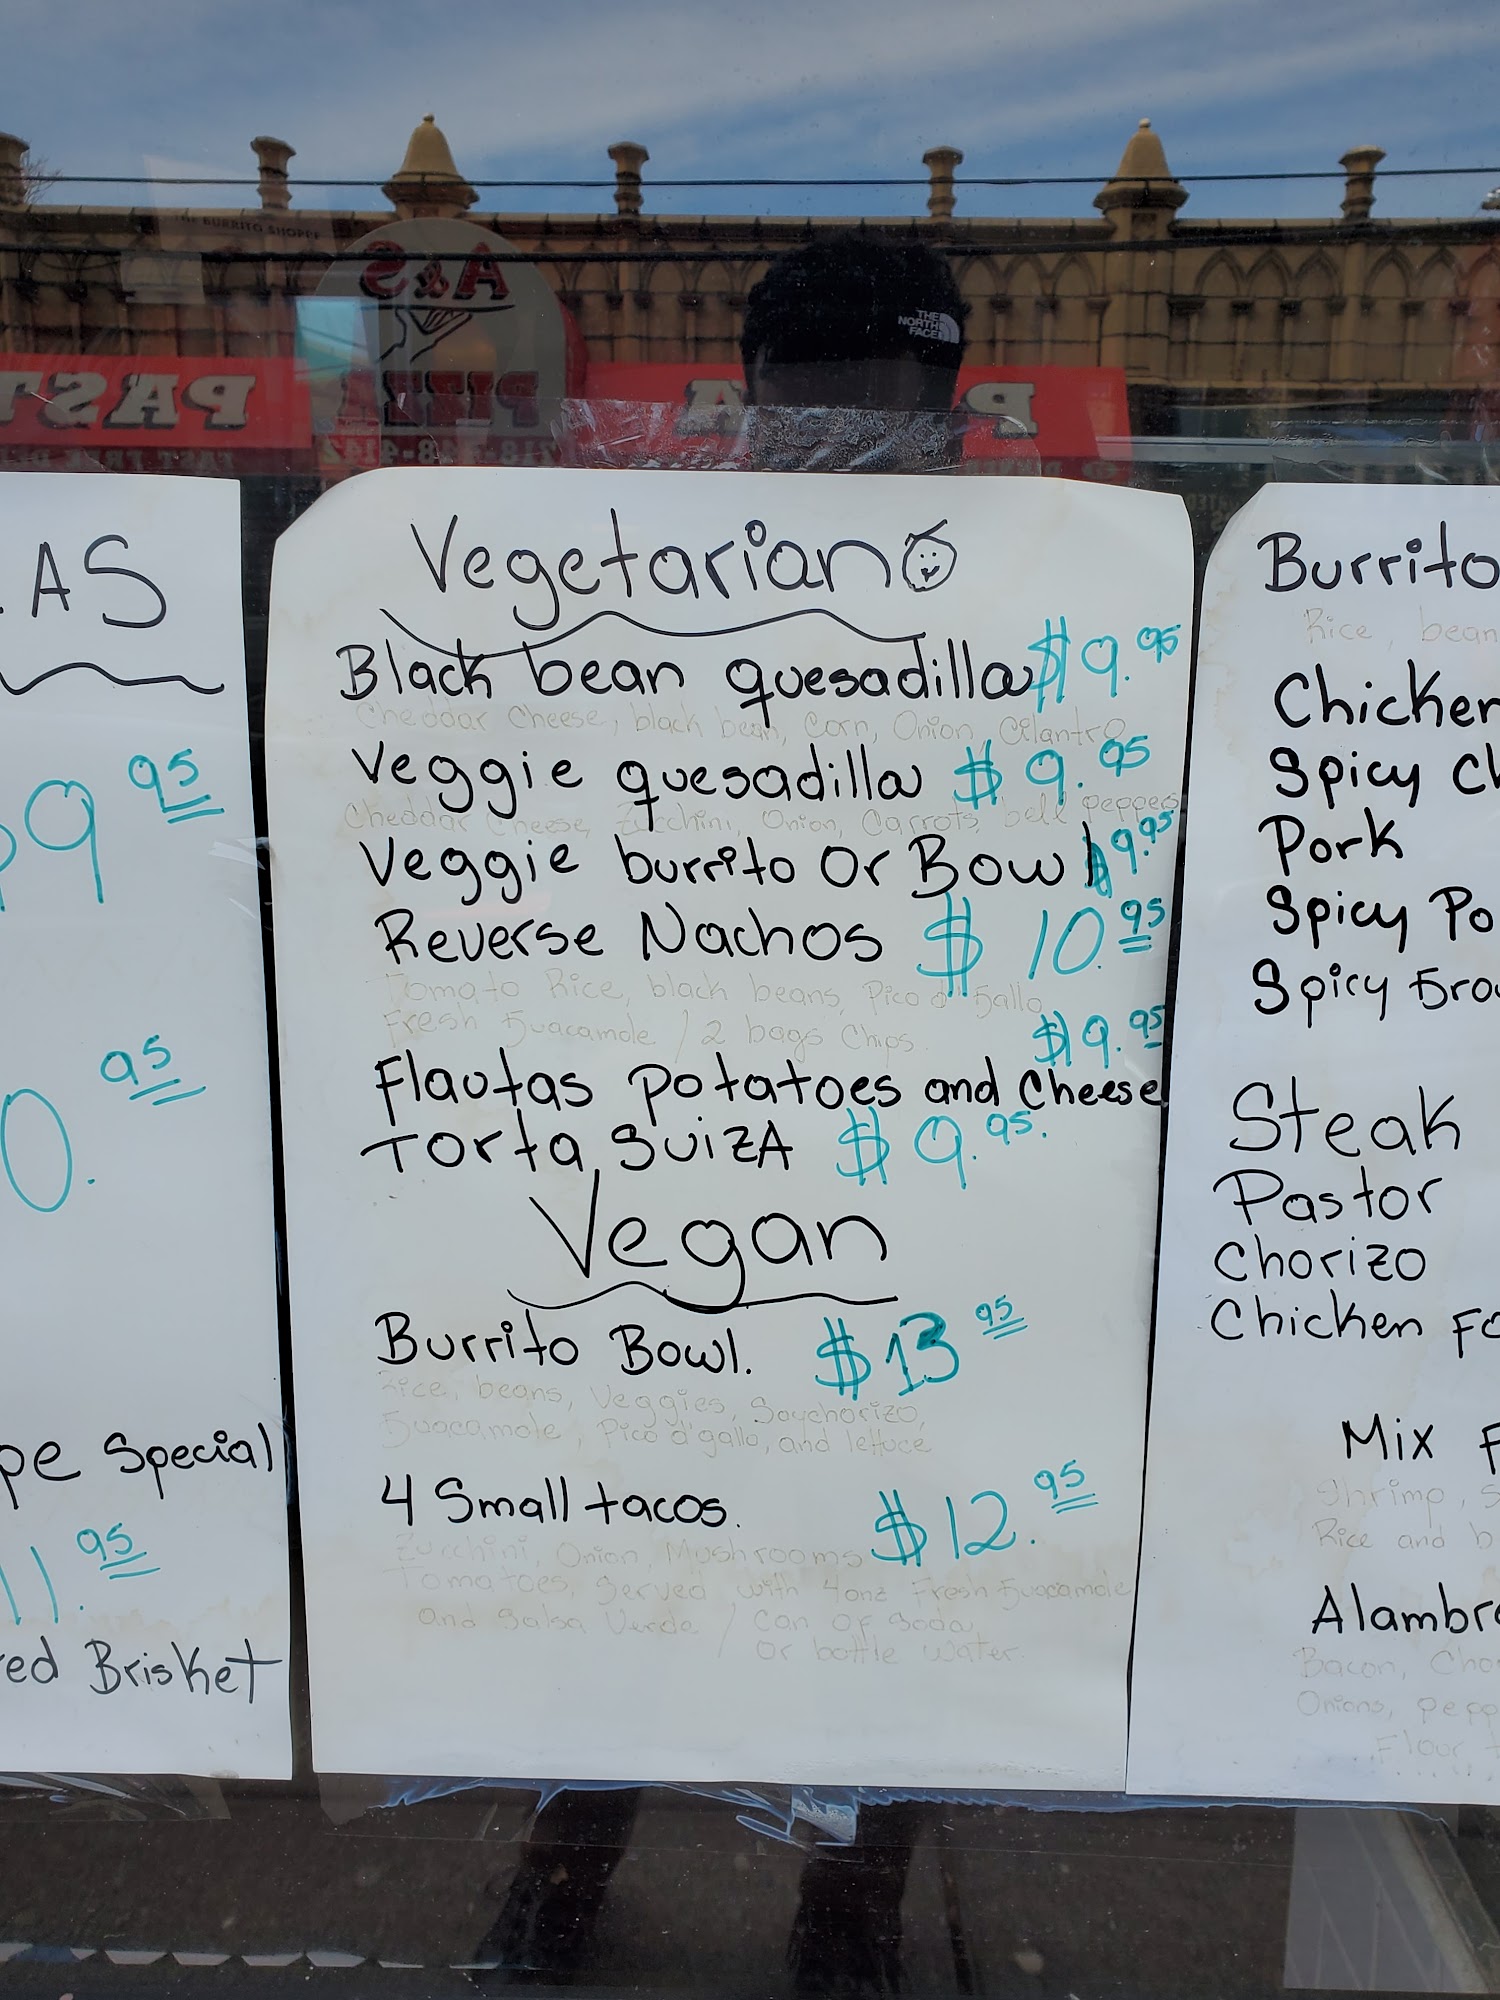 THE BURRITO SHOPPE
A&S
PASTA
PIZZA
718-
THE
NORTH
FACE
AS
9 95
0. 95
Special
11. 95
Brisket
Vegetarian
Black bean quesadilla $9.95
Cheddar Cheese, black bean, Corn, Onion, Cilantro
Veggie quesadilla $9.95
Cheddar Cheese, Zucchini, Onion, Carrots, bell peppers
Veggie burrito Or Bowl $9.95
Reverse Nachos $10.95
Tomato Rice, black beans, Pico d' Gallo
Fresh Guacamole / 2 bags Chips.
$9.95
Flautas Potatoes and Cheese
Torta SuizA $9.95.
Vegan
Burrito Bowl. $13 95
Rice, beans, Veggies, Soychorizo,
Guacamole, Pico d'gallo, and lettuce
4 Small tacos. $12.95
Zucchini, Onion, Mushrooms
Tomatoes, Served with 4onz Fresh Guacamole
and Salsa Verde / Can Of Soda
Or bottle Water.
Burrito
Rice, bean
Chicken
Spicy Ch
Pork
Spicy Po
Spicy Gro
Steak
Pastor
Chorizo
Chicken
Mix
Shrimp,
Rice and b
Alambr
Bacon, Cho
Onions, pepp
Flour